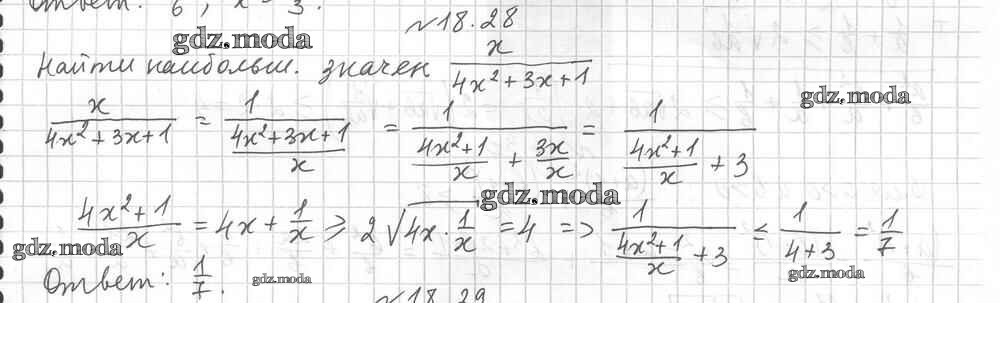 Ответ: 6, x = 3.
№18.28
gdz.moda
Найти наибольш. значен x/(4x²+3x+1)
gdz.moda
x/(4x²+3x+1) = 1/((4x²+3x+1)/x) = 1/((4x²+1)/x + 3x/x) = 1/((4x²+1)/x + 3)
gdz.moda
(4x²+1)/x = 4x + 1/x ≥ 2√(4x · 1/x) = 4 => 1/((4x²+1)/x + 3) ≤ 1/(4+3) = 1/7
gdz.moda
gdz.moda
Ответ: 1/7.
gdz.moda
№18.29